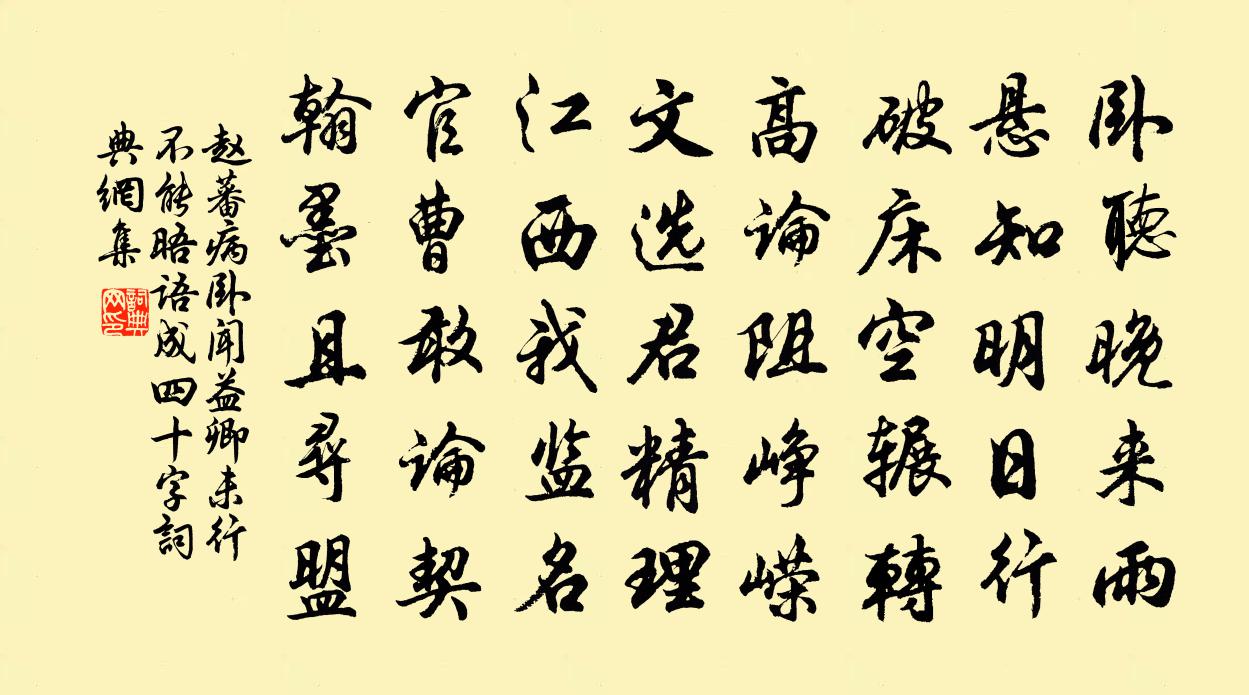 卧聽晚来雨
悬知明日行
破床空辗轉
高論阻峥嵘
文选君精理
江西我监名
官曹敢論契
翰墨且尋盟
赵蕃病卧闻益卿未行
不能晤語成四十字詞
典網集
詞典网印